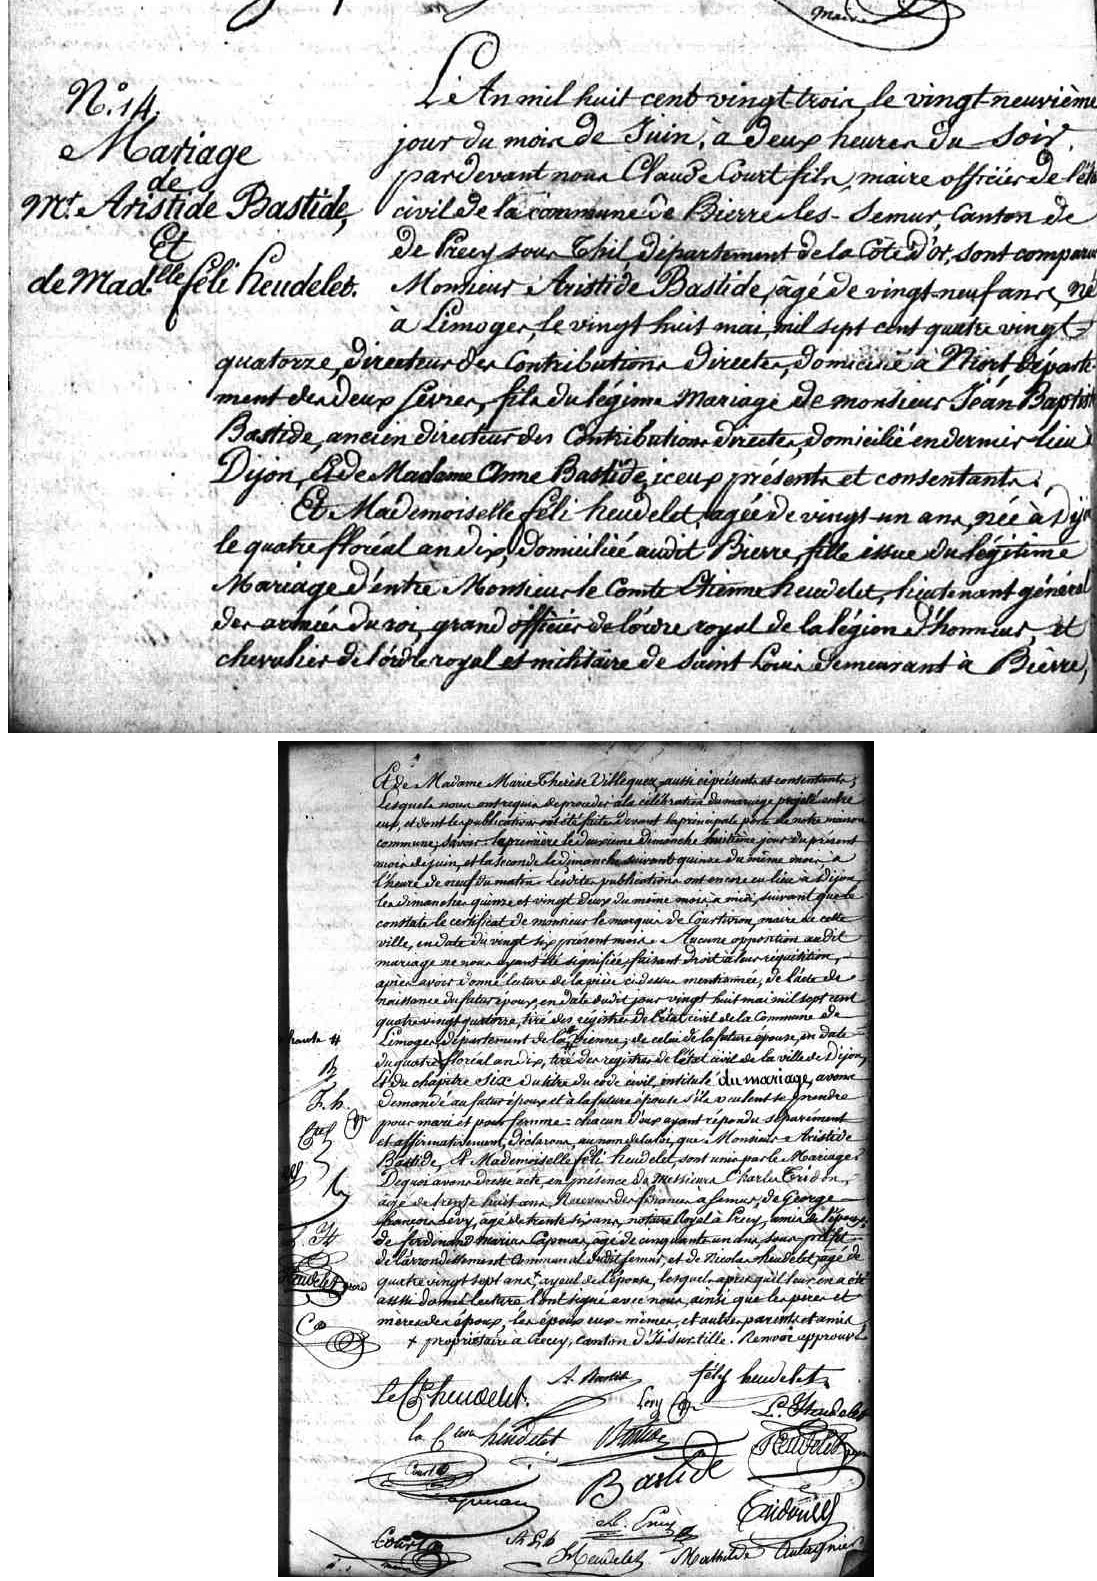 maire
N.° 14.
Mariage
de
Mr. Aristide Bastide,
Et
de Mad.lle féli heudelet.
L'An mil huit cent vingt trois, le vingt-neuvième
jour du mois de Juin, à deux heures du soir,
pardevant nous Claude Court fils, maire officier de l'état
civil de la commune de Bierre-les-Semur, Canton de
de Precy sous Thil département de la Côte d'or, sont comparus
Monsieur Aristide Bastide, âgé de vingt-neuf ans, né
à Limoges, le vingt huit mai, mil sept cent quatre vingt-
quatorze, directeur des Contributions directes, domicilié à Niort départe-
ment des deux Sèvres, fils du légime Mariage de monsieur Jéan Baptiste
Bastide, ancien directeur des Contributions directes, domicilié en dernier lieu à
Dijon, et de Madame Anne Bastide, iceux présents et consentants;
Et Mademoiselle féli heudelet, agée de vingt-un ans, née à Dijon
le quatre floréal an dix, domiciliée audit Bierre, fille issue du légitime
Mariage d'entre Monsieur le Comte Etienne heudelet, lieutenant général
des armées du roi, grand officier de l'ordre royal de la légion d'honneur, et
chevalier de l'ordre royal et militaire de Saint Louis demeurant à Bierre,
Et de Madame Marie Thérèse Villequez, aussi ci présents et consentants;
Lesquels nous ont requis de procéder à la célébration du mariage projeté entre
eux, et dont les publications ont été faites devant la principale porte de notre maison
commune; savoir: la première le deuxième dimanche huitième jour du présent
mois de juin, et la seconde le dimanche suivant quinze du même mois, à
l'heure de neuf du matin. Lesdites publications ont encore eu lieu à Dijon
les dimanches quinze et vingt deux du même mois à midi, suivant que le
constate le certificat de monsieur le marquis de Courtivron, maire de cette
ville, en date du vingt six présent mois. Aucune opposition audit
mariage ne nous ayant été signifiée, faisant droit à leur réquisition,
après avoir donné lecture de la pièce ci dessus mentionnée, de l'acte de
naissance du futur époux, en date dudit jour vingt huit mai mil sept cent
quatre vingt quatorze, tiré des registres de l'état civil de la Commune de
Limoges, département de la vienne; de celui de la future épouse, en date
du quatre floréal an dix, tiré des registres de l'état civil de la ville de Dijon,
Et du chapitre six du titre du code civil, intitulé du mariage, avons
demandé au futur époux et à la future épouse s'ils veulent se prendre
pour mari et pour femme: chacun d'eux ayant répondu séparément
et affirmativement, déclarons, au nom de la loi, que Monsieur Aristide
Bastide, Et Mademoiselle féli heudelet, sont unis par le Mariage.
De quoi avons dressé acte, en présence de Messieurs Charles Tridon,
âgé de trente huit ans, Receveur des finances à Semur, de George
françois Lévy, agé de trente six ans, notaire Royal à Précy, amis de l'époux;
de ferdinand marie Capmas, agé de cinquante un ans, sous préfet
de l'arrondissement Communal dudit Semur, et de Nicolas heudelet, âgé de
quatre vingt sept ans +, ayeul de l'épouse, lesquels après qu'il leur en a été
aussi donné lecture l'ont signé avec nous, ainsi que les pères et
mères des époux, les époux eux-mêmes, et autres parents et amis
+ propriétaire à Crecey, canton d'Is sur tille. Renvoi approuvé
B
F. h.
heudelet
Le Cte heudelet.
A. Bastide
féli heudelet
Levy
L. Heudelet
la Ctesse heudelet
Bastide
heudelet
Court
Bastide
Court
maire
Heudelet
Mathilde